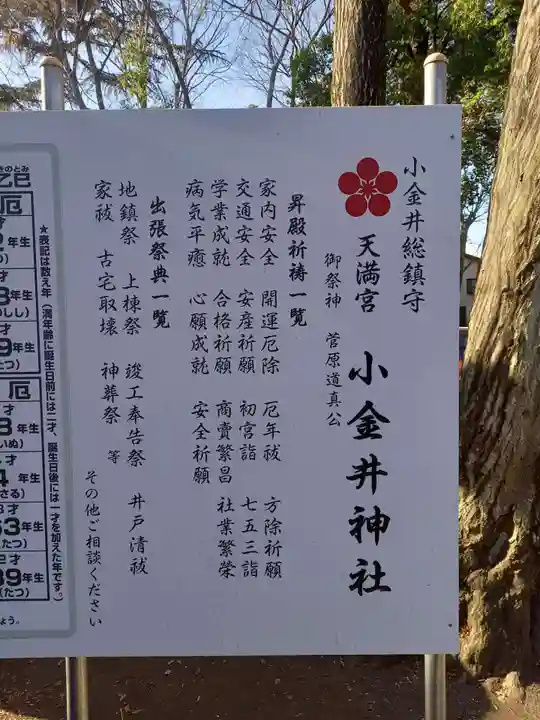 小金井総鎮守
天満宮 小金井神社
御祭神 菅原道真公
昇殿祈祷一覧
家内安全 開運厄除 厄年祓 方除祈願
交通安全 安産祈願 初宮詣 七五三詣
学業成就 合格祈願 商賣繁昌 社業繁榮
病気平癒 心願成就 安全祈願
出張祭典一覧
地鎮祭 上棟祭 竣工奉告祭 井戸清祓
家祓 古宅取壊 神葬祭 等
その他ご相談ください
★表記は数え年(満年齢に誕生日前には二才、誕生日後には一才を加えた年です。)
きのとみ
乙巳
厄
才
年生
しし)
才
9年生
(たつ)
厄
才
3年生
いぬ)
才
4年生
さる)
才
63年生
(たつ)
才
89年生
(たつ)
ょう。